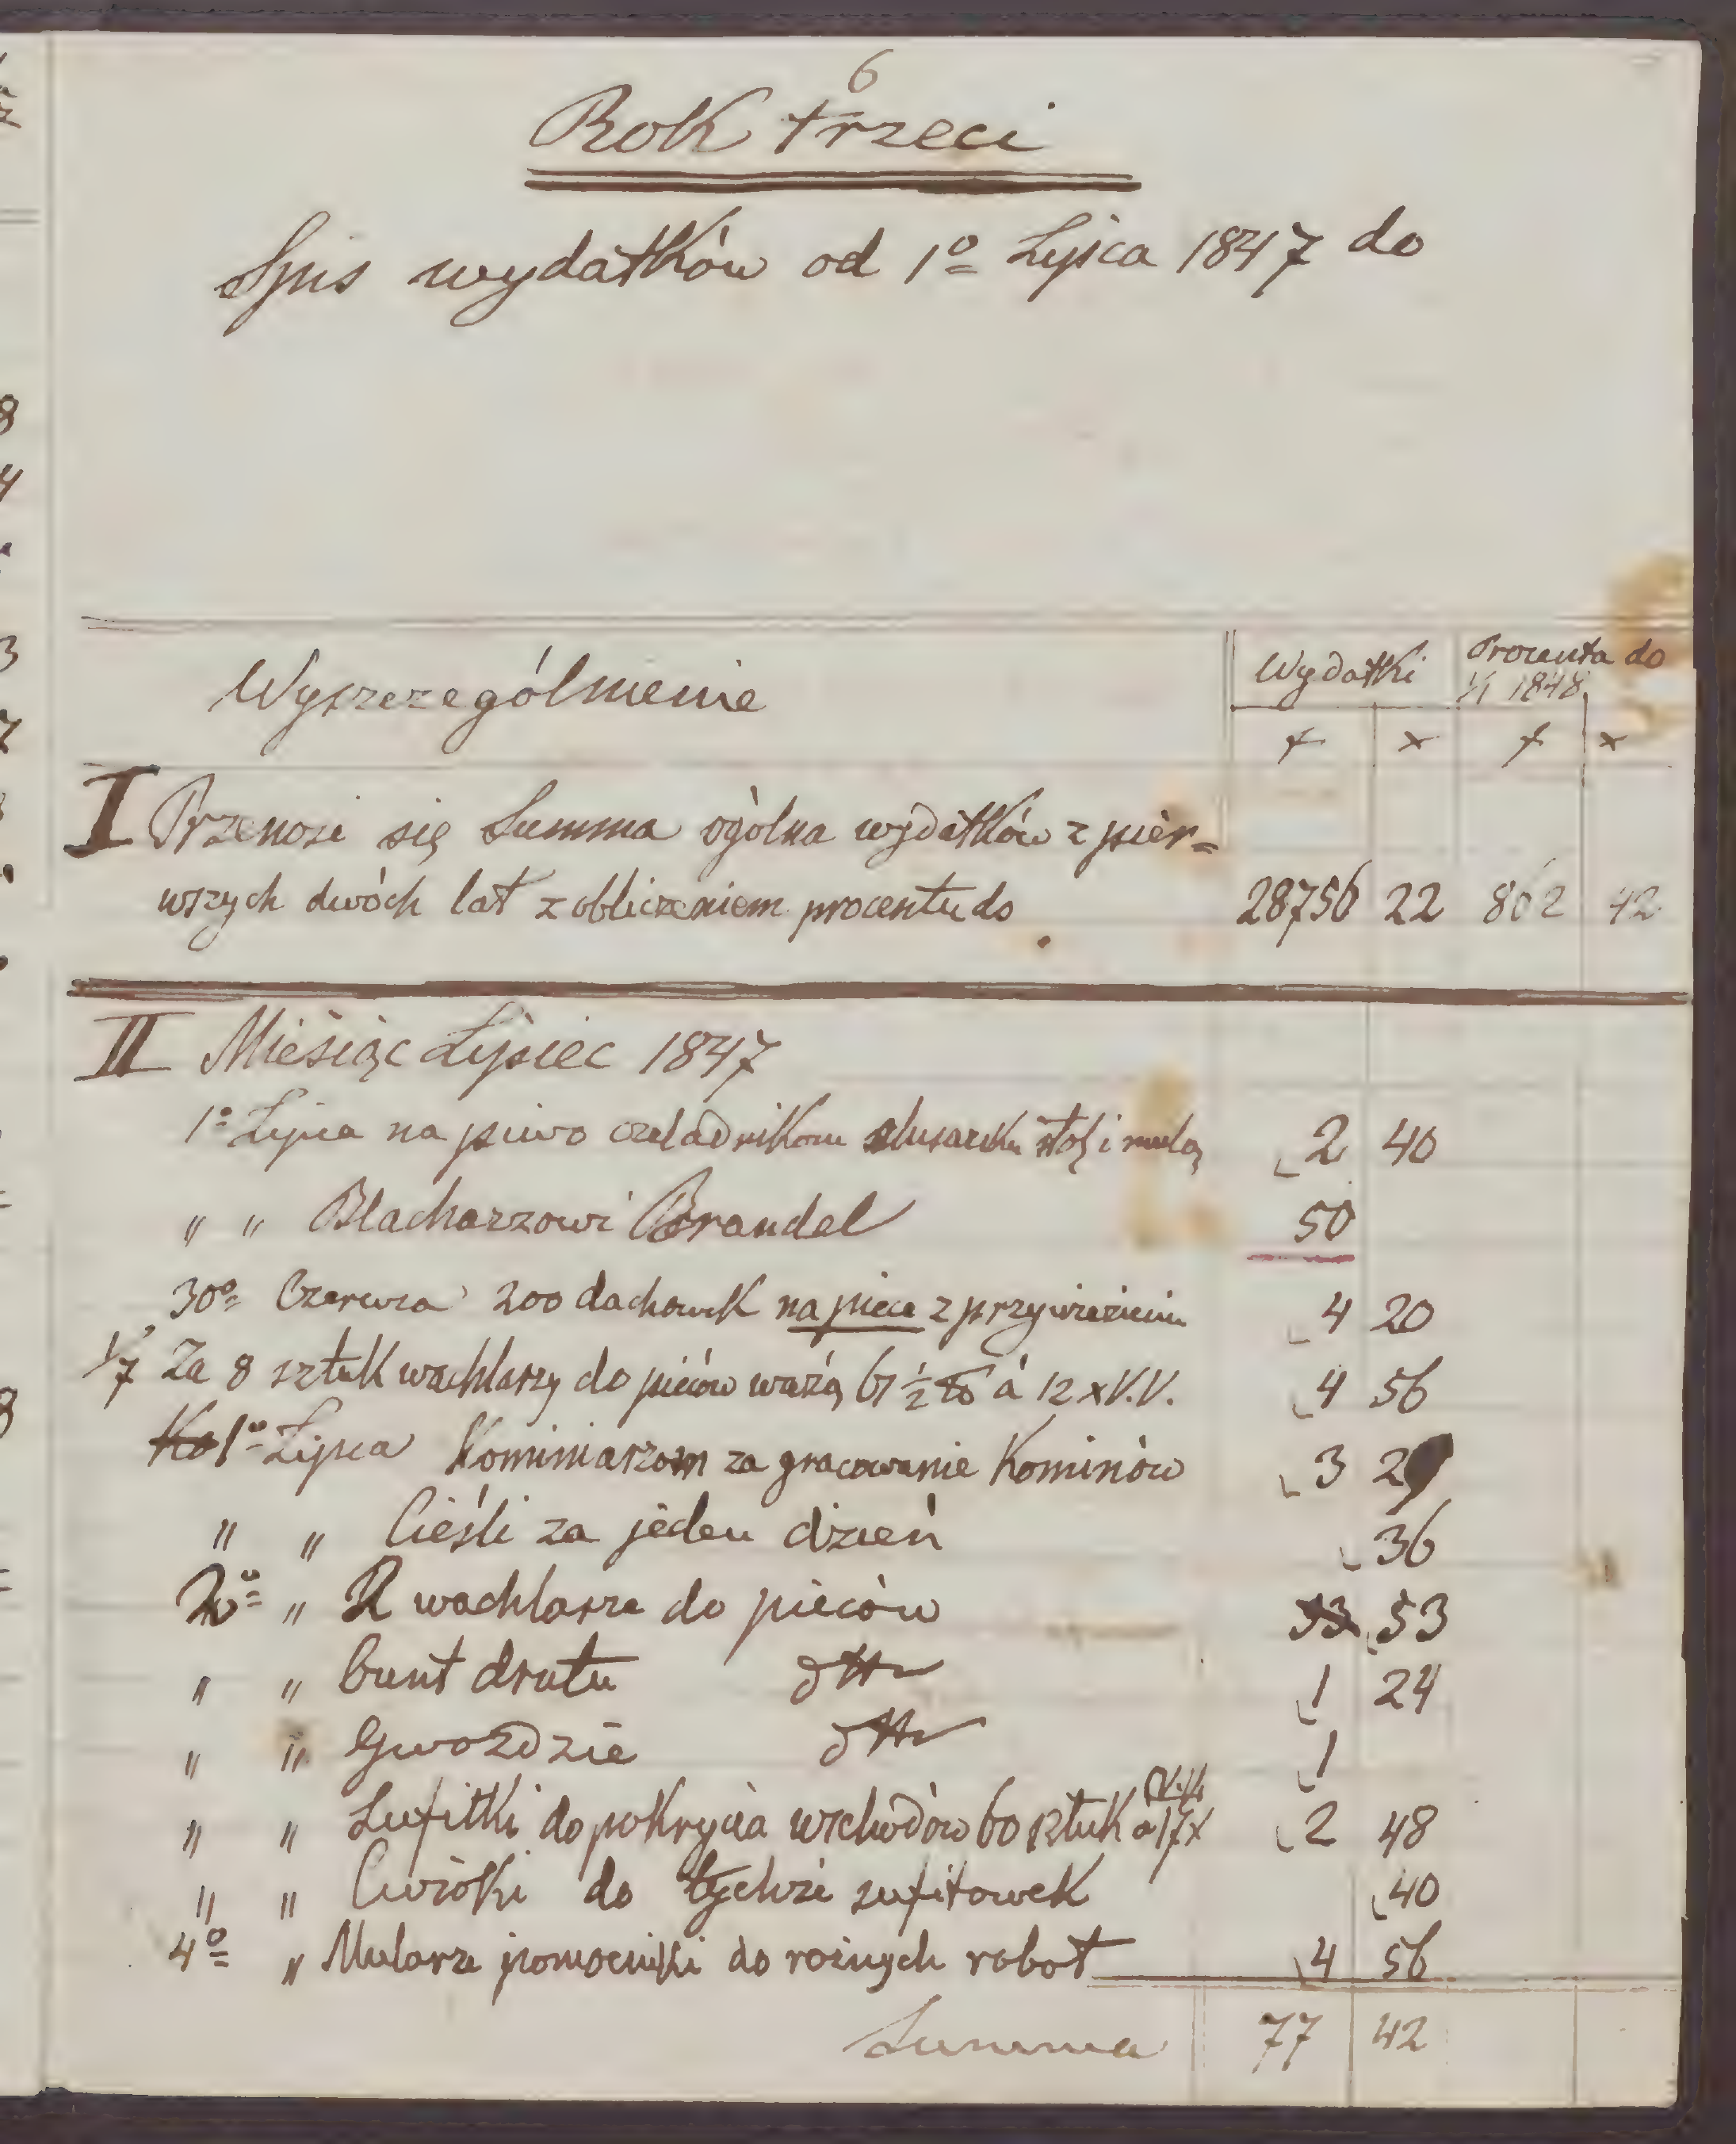 6
Rok trzeci
Spis wydatków od 1º Lipca 1847 do
Wyszczególnienie Wydatki Procenta do
1/1 1848
f x f x
I Przenosi się Summa ogólna wydatków z pier=
wszych dwóch lat z obliczeniem procentu do 28756 22 862 42
II Miesiąc Lipiec 1847
1º Lipca na piwo czeladnikom slusarsk stol i mula 2 40
" " Blacharzowi Brandel 50
30º Czerwca 200 dachowek na piece z przywiezieniem 4 20
1/7 Za 8 sztuk wachlarzy do pieców ważą 61 1/2 ℔ á 12 x V.V. 4 56
1º Lipca Kominiarzom za gracowanie Kominów 3 29
" " Cieśli za jeden dzień 36
2º " 2 wachlarze do pieców 53
" " bunt drutu dtto 1 24
" " Gwozdzie dtto 1
" " Sufitki do pokrycia wschodów 60 sztuk a 17x 2 48
" " Cwioki do tychże sufitowek 40
4º " Mularze pomocniki do rożnych robot 4 56
Summa 77 42